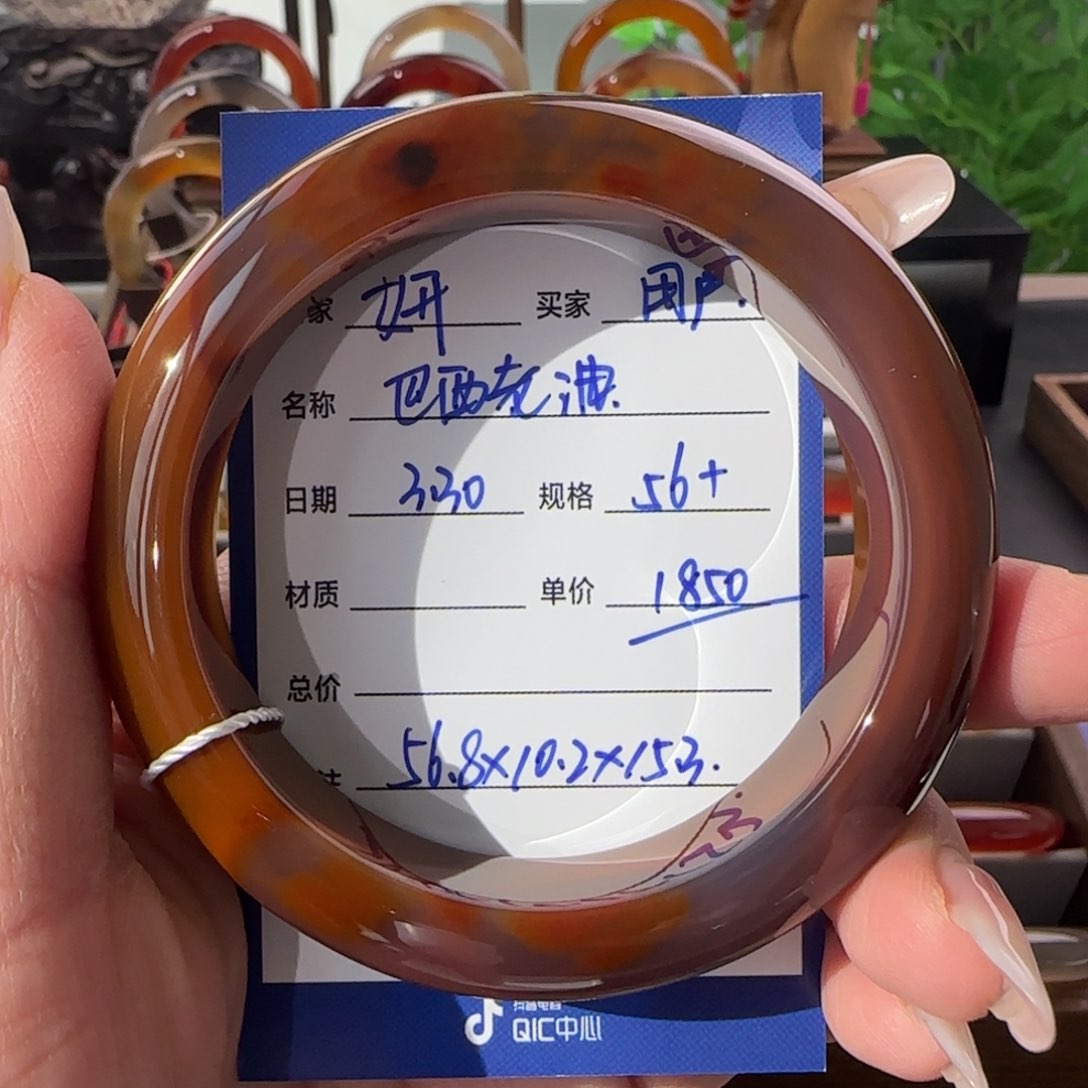 家 妍 买家 用户.
名称 巴西老油
日期 3.30 规格 56+
材质 单价 1850
总价
56.8×10.2×15.3.
抖音电商
QIC中心